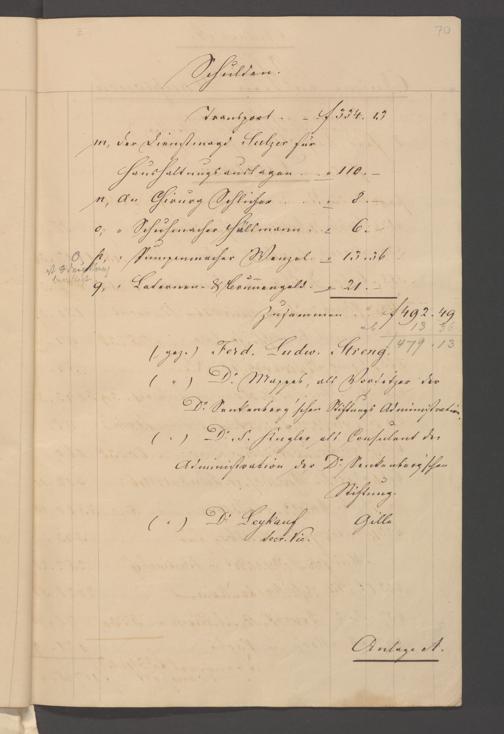 70
Schulden.
Transport . . f 334. 13
m, der Dienstmagd Sulzer für
Haushaltungsauslagen . . " 110. –
n, An Chirurg Schlicher . . " 8. –
o, " Schuhmacher Hällmann . . " 6. –
p, " Pumpenmacher Wenzel " 13. 36
q, " Laternen- & Brunnengeld " 21. –
Zusammen f 492. 49
ab 13 36
479. 13
(gez.) Ferd. Ludw. Streng
( " ) Dr. Mappes, als Vorsitzer der
Dr. Senkenberg'schen Stiftungs Administration
( " ) Dr. S. Kugler als Consulent der
Administration der Dr. Senkenberg'schen
Stiftung.
( " ) Dr. Leykauf Gille
Secr. Vic.
Anlage A.